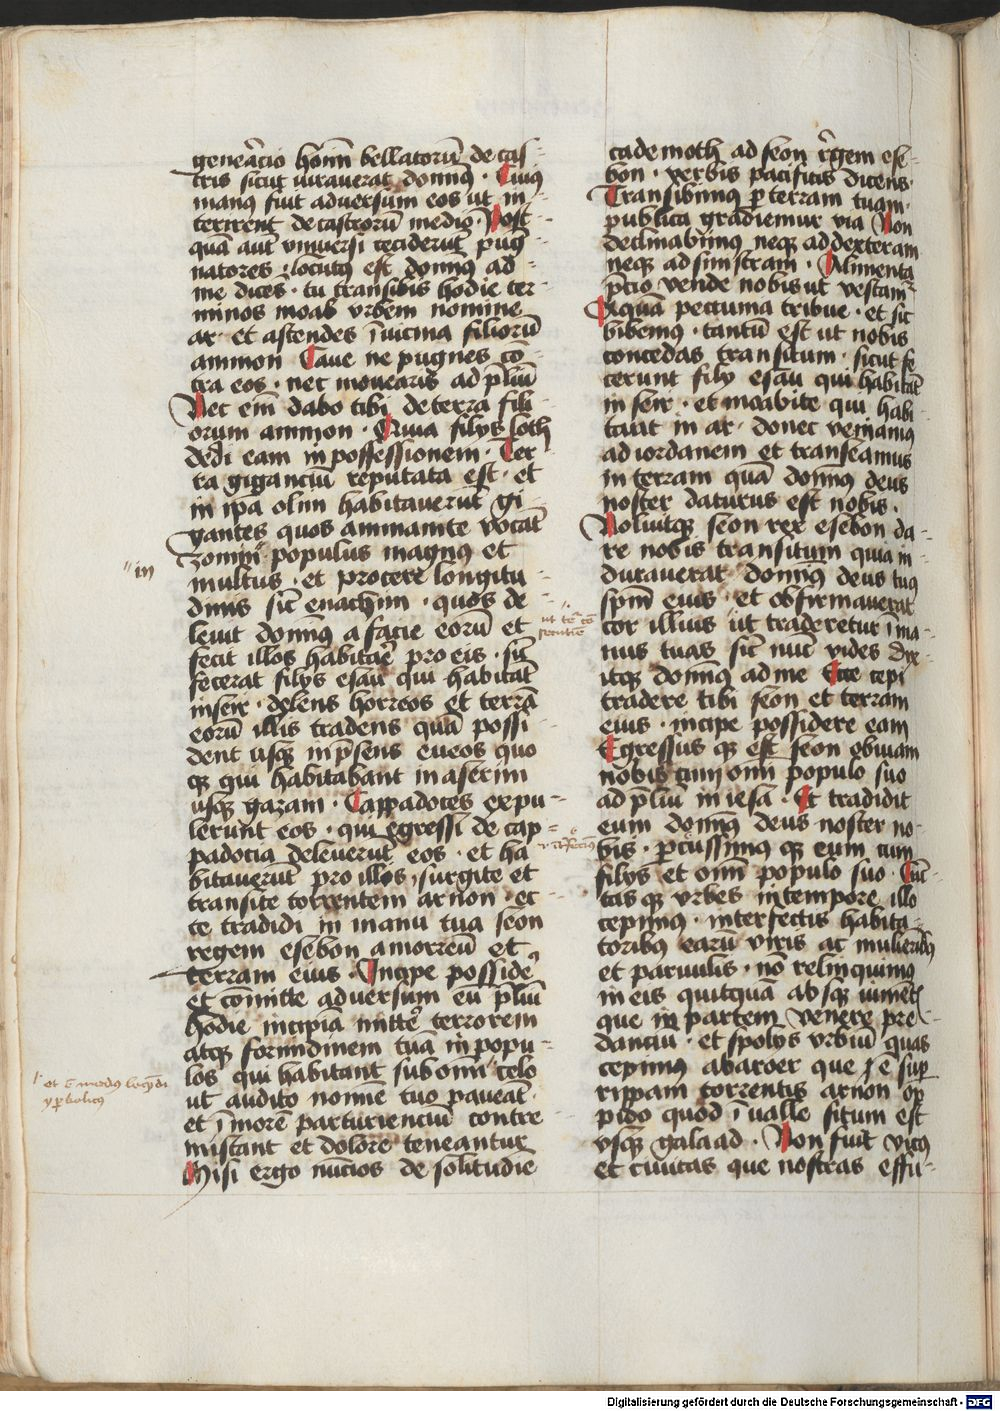 geneᵃcio hoīm bellatorū de cas-
tris sicut iurauerat domīꝰ . Cuiꝰ
manꝰ fuit adversum eos ut in-
terirent de castrorū medio . Post-
quā aut vniuersi ceciderūt pug-
natores . locutꝰ est domīꝰ ad-
me dicēs . tu transibis hodie ter-
minos moab vrbem nomine
ar et ascendes ī uicina filiorū
ammon Caue ne pugnes cō-
tra eos . nec mouearis ad p̄liū
Nec em̄ dabo tibi de terra fili-
orum ammon . Quia filys loth
dedi eam in possessionem . Ter-
ra gigancium reputata est . et
in ip̄a olim habitauerūt gi-
gantes quos ammanite vocāt
zomīm populus magnus et
multus . et procere longitu-
dinis sicī enachim . quos de-
leuit domīꝰ a facie eorū et
fecit illos habitaē pro eis . siī
fecerat filys esau qui habitāt
in seir . delens horreos et terrā
eorū illis tradens quā possi-
dent usqꝫ in p̄sens eueos quo
qꝫ qui habitabant in aserim
usqꝫ gazam . Cappadoces expu-
lerunt eos . qui egressi de cap-
padocia deleuerūt eos . et ha-
bitauerūt pro illos , surgite et
transite torrentem arnon . ec-
ce tradidi in manu tua seon
regem esebon amorreū et
terram eius . Incipe possidē
et cōmitte adversum eū p̄liū
hodie incipiā mittē terrorem
atqꝫ formidinem tuā in popu-
los qui habitant sub omī celo
ut audito nomīe tuo paueāt
et ī morē parturienciū contre
miscant et dolore teneantur
Misi ergo nūcios de solitudīe
cademoth ad seon r̄gem ese-
bon . verbis pacificis dicens .
Transibimꝰ p terram tuam .
publica gradiemur via Non
declinabimꝰ neqꝫ ad dexteram
neqꝫ ad sinistram . Alimenta
p̄cio vende nobis ut vescamʳ
Aquā peccunia tribue . et sic
bibemus . tantū est ut nobis
concedas transitum . sicut fe
cerunt fily esau qui habitāt
in seir . et moabite qui habi-
tāt in ar . donec veniamꝰ
ad iordanem et transeamus
in terram quā domīꝰ deus
noster daturus est nobis .
Noluitqꝫ seon rex esebon da-
re nobis transitum quia in-
durauerat domīꝰ deus tuꝰ
sp̄m eius . et obfirmauerat
cor illius ut traderetur ī ma-
nus tuas sicī nūc vides Dix-
itqꝫ domīꝰ ad me Ecce cepi
tradere tibi seon et terram
eius . incipe possidere eam
Egressus qꝫ est seon obuiam
nobis cum omī populo suo
ad p̄liū in iesa . Et tradidit
eum domīꝰ deus noster no-
bis . p̄cussimꝰ qꝫ eum cum
filys et omī populo suo . Cūc
tas qꝫ vrbes in tempore illo
cepimꝰ . interfectis habita-
toribꝰ earū viris ac mulieribꝰ
et paruulis . nō relinquimꝰ
in eis quitquā absqꝫ iumētis
que in partem venere pre-
danciū . et spolys vrbiū quas
cepimꝰ ab aroer que ē sup
rippam torrentis arnon op
pido quod ī ualle situm est
vsqꝫ galaad . Non fuit vicꝰ
et ciuitas que nostras effu-
in
et ē modus loqn̄di
yp̄bolicꝰ